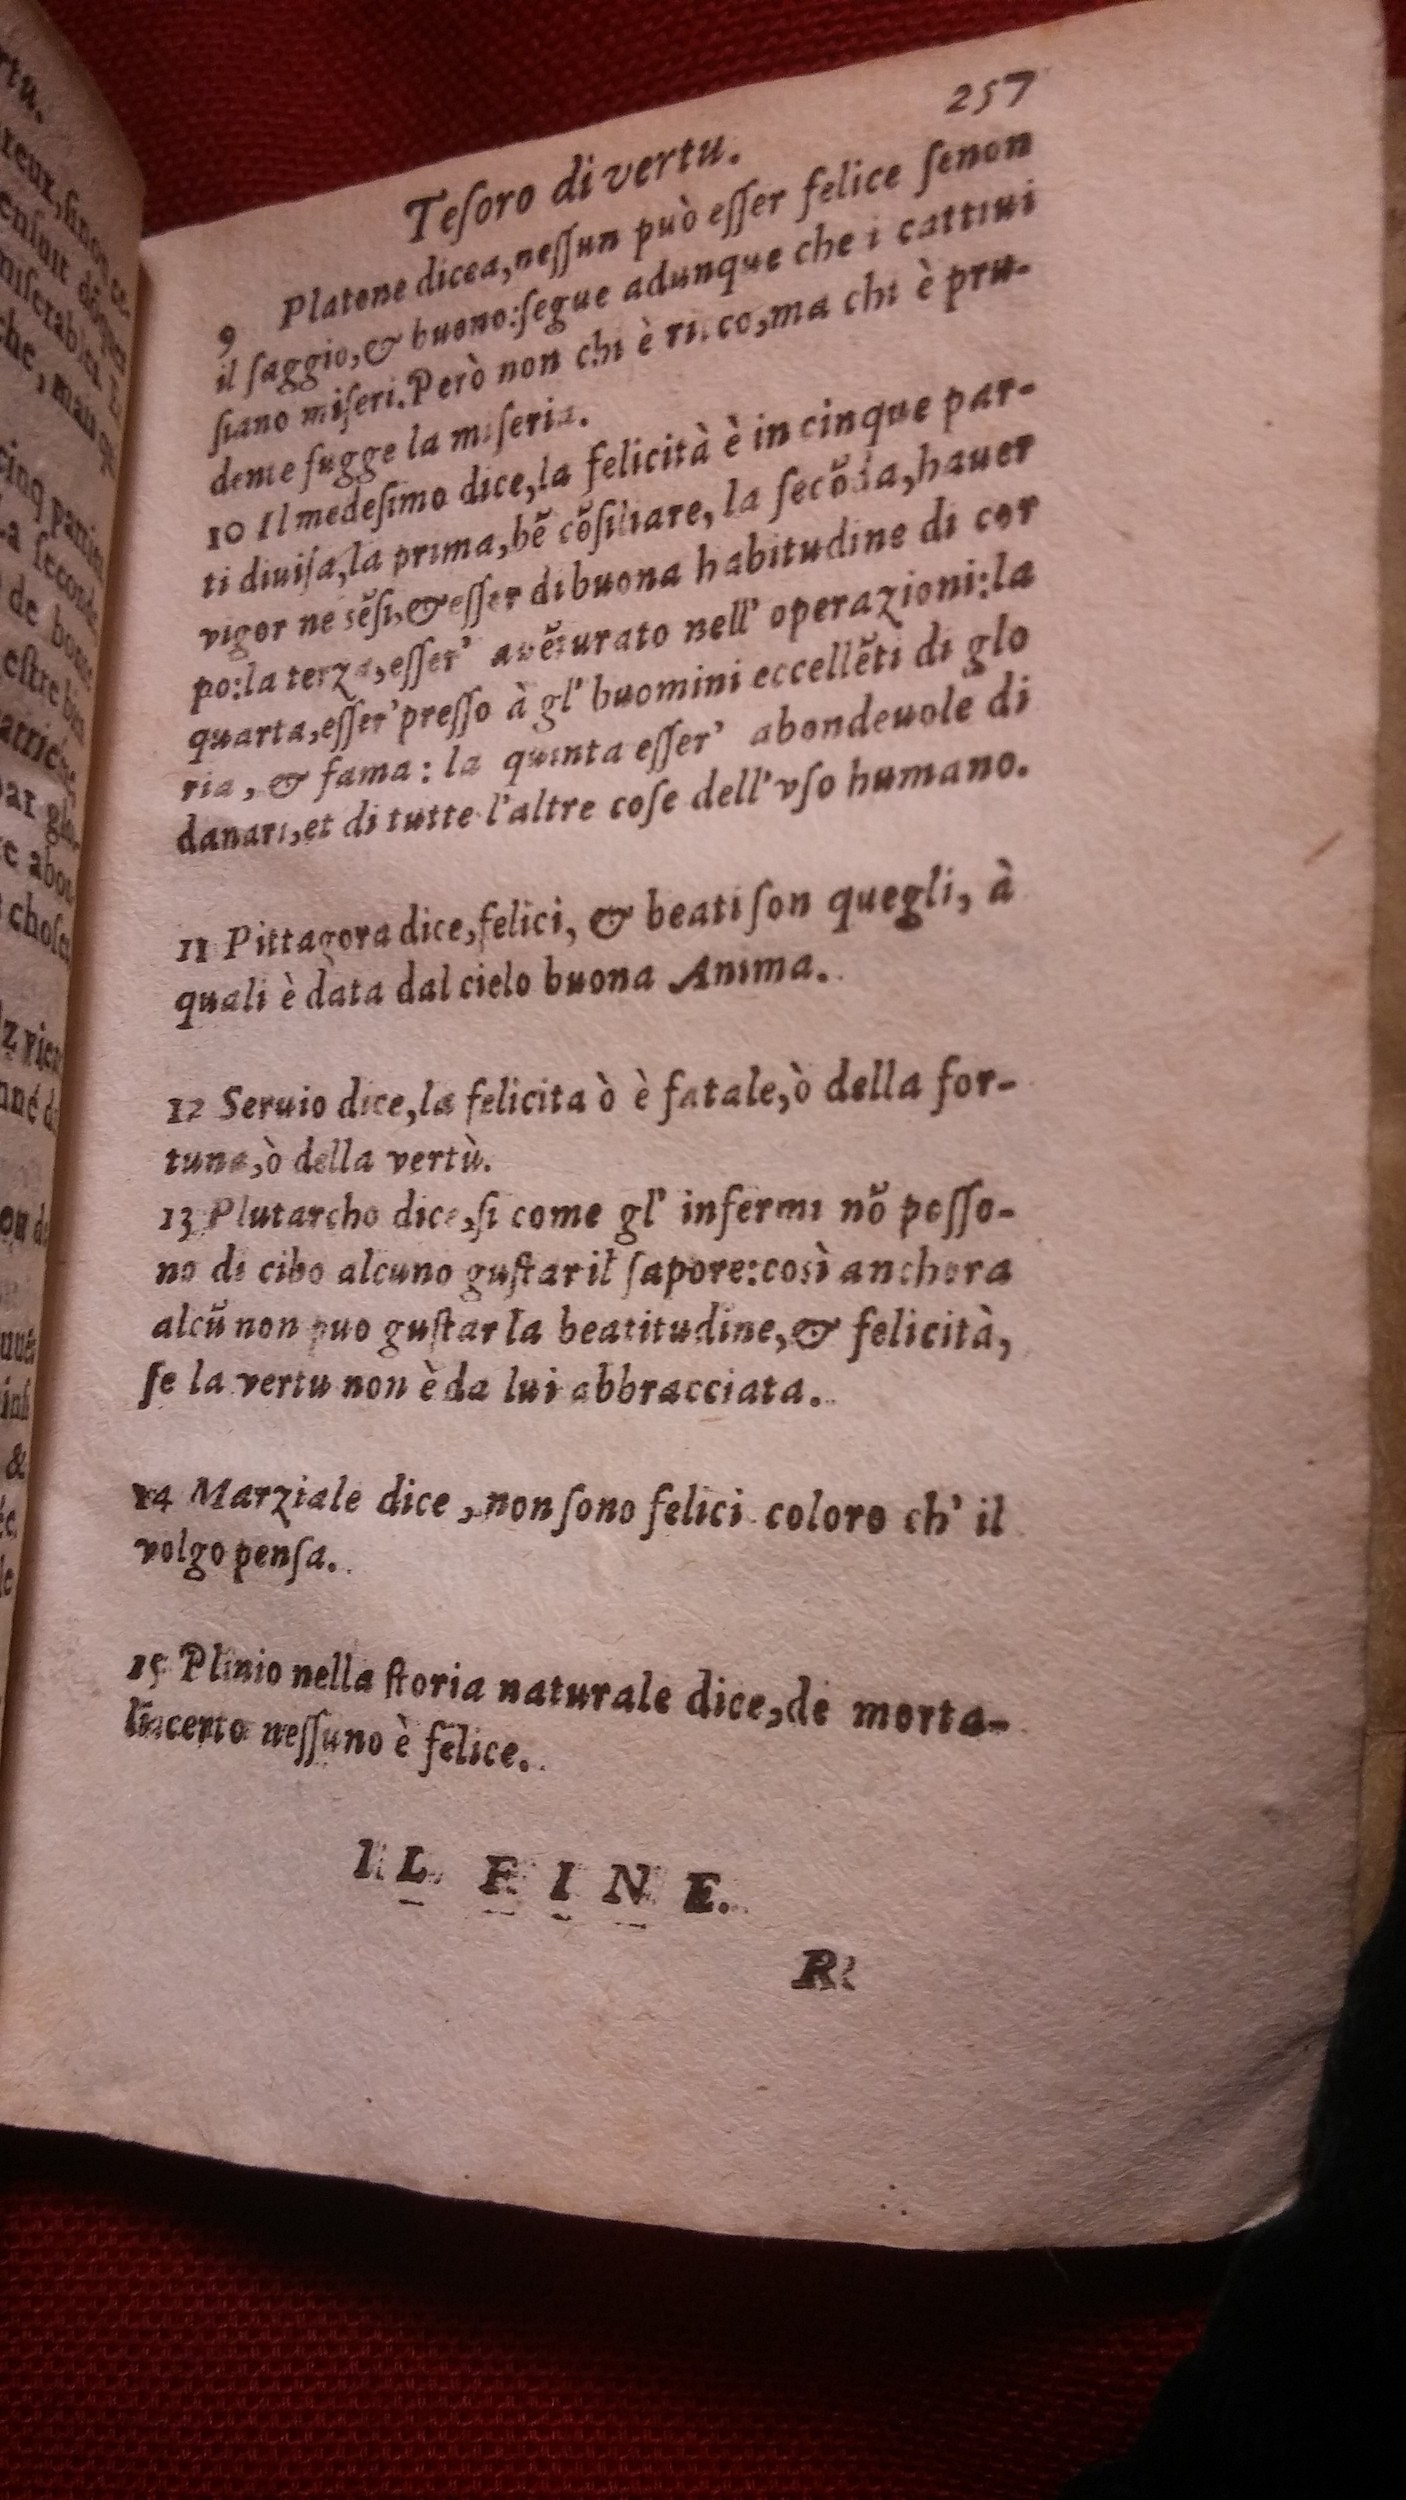 257
Teſoro di vertu.
9 Platone dicea,neſſun può eſſer felice ſenon
il ſaggio,& buono:ſegue adunque che i cattiui
ſiano miſeri.Però non chi è ricco,ma chi è pru-
dente fugge la miſeria.
10 Il medeſimo dice,la felicità è in cinque par-
ti diuiſa,la prima,bẽ cõſiliare, la ſecõda,hauer
vigor ne sẽſi,&eſſer di buona habitudine di cor
po:la terza,eſſer' auẽturato nell' operazioni:la
quarta,eſſer'preſſo à gl' huomini eccellẽti di glo
ria , & fama : la quinta eſſer' abondeuole di
danari,et di tutte l'altre coſe dell'vſo humano.
11 Pittagora dice,felici, & beati ſon quegli, à
quali è data dal cielo buona Anima.
12 Seruio dice,la felicita ò è fatale,ò della for-
tuna,ò della vertù.
13 Plutarcho dice,ſi come gl' infermi nõ poſſo-
no di cibo alcuno guſtar il ſapore:così anchora
alcũ non puo guſtar la beatitudine,& felicità,
ſe la vertu non è da lui abbracciata.
14 Marziale dice , non ſono felici coloro ch' il
volgo penſa.
15 Plinio nella ſtoria naturale dice,de morta-
li certo neſſuno è felice.
IL FINE.
R